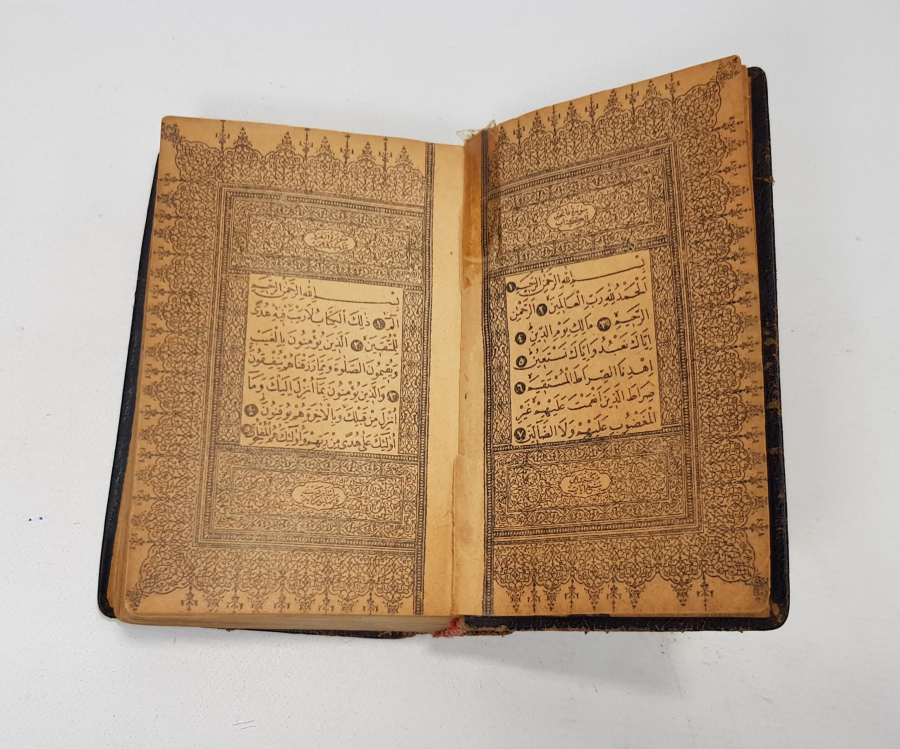 بسم الله الرحمن الرحيم ١
الحمد لله رب العالمين ٢ الرحمن
الرحيم ٣ مالك يوم الدين ٤
اياك نعبد واياك نستعين ٥
اهدنا الصراط المستقيم ٦
صراط الذين انعمت عليهم غير
المغضوب عليهم ولا الضالين ٧
بسم الله الرحمن الرحيم
الم ١ ذلك الكتاب لا ريب فيه هدى
للمتقين ٢ الذين يؤمنون بالغيب
ويقيمون الصلوة ومما رزقناهم ينفقون
٣ والذين يؤمنون بما انزل اليك وما
انزل من قبلك وبالاخرة هم يوقنون ٤
اولئك على هدى من ربهم واولئك هم المفلحون ٥